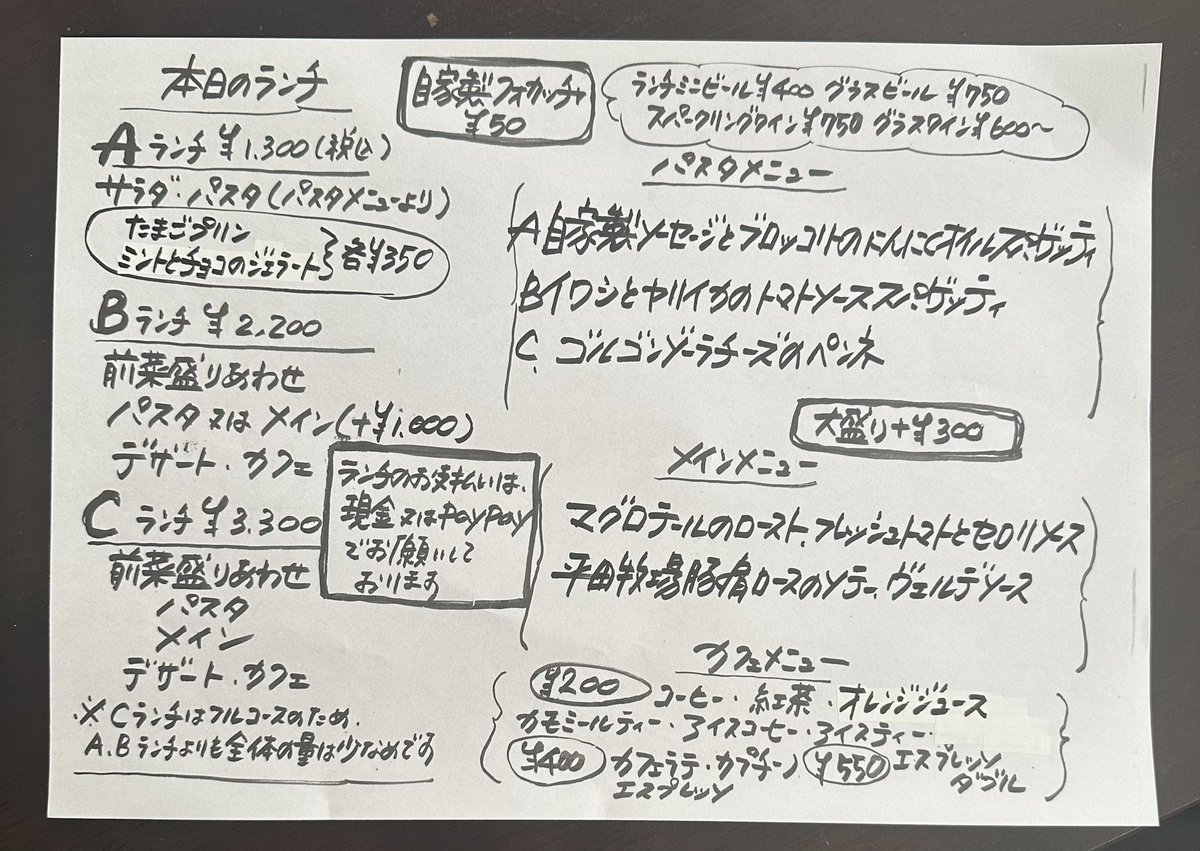 本日のランチ
Aランチ ¥1,300(税込)
サラダ・パスタ(パスタメニューより)
たまごプリン
ミントとチョコのジェラート
各¥350
Bランチ ¥2,200
前菜盛りあわせ
パスタ又はメイン(+¥1,000)
デザート・カフェ
Cランチ ¥3,300
前菜盛りあわせ
パスタ
メイン
デザート・カフェ
※Cランチはフルコースのため、
A.Bランチよりも全体の量は少なめです
自家製フォカッチャ
¥50
ランチのお支払いは、
現金又はPayPay
でお願いして
おります
ランチミニビール¥400 グラスビール ¥750
スパークリングワイン¥750 グラスワイン¥600〜
パスタメニュー
A自家製ソーセージとブロッコリーのにんにくオイルスパゲッティ
BイワシとヤリイカのトマトソーススパゲッティC. ゴルゴンゾーラチーズのペンネ
大盛り+¥300
メインメニュー
マグロテールのロースト、フレッシュトマトとセロリソース
平田牧場豚肩ロースのソテー、ヴェルデソース
カフェメニュー
¥200 コーヒー・紅茶・オレンジジュース
カモミールティー・アイスコーヒー・アイスティー・
¥400 カフェラテ・カプチーノ ¥550 エスプレッソ
エスプレッソ ダブル